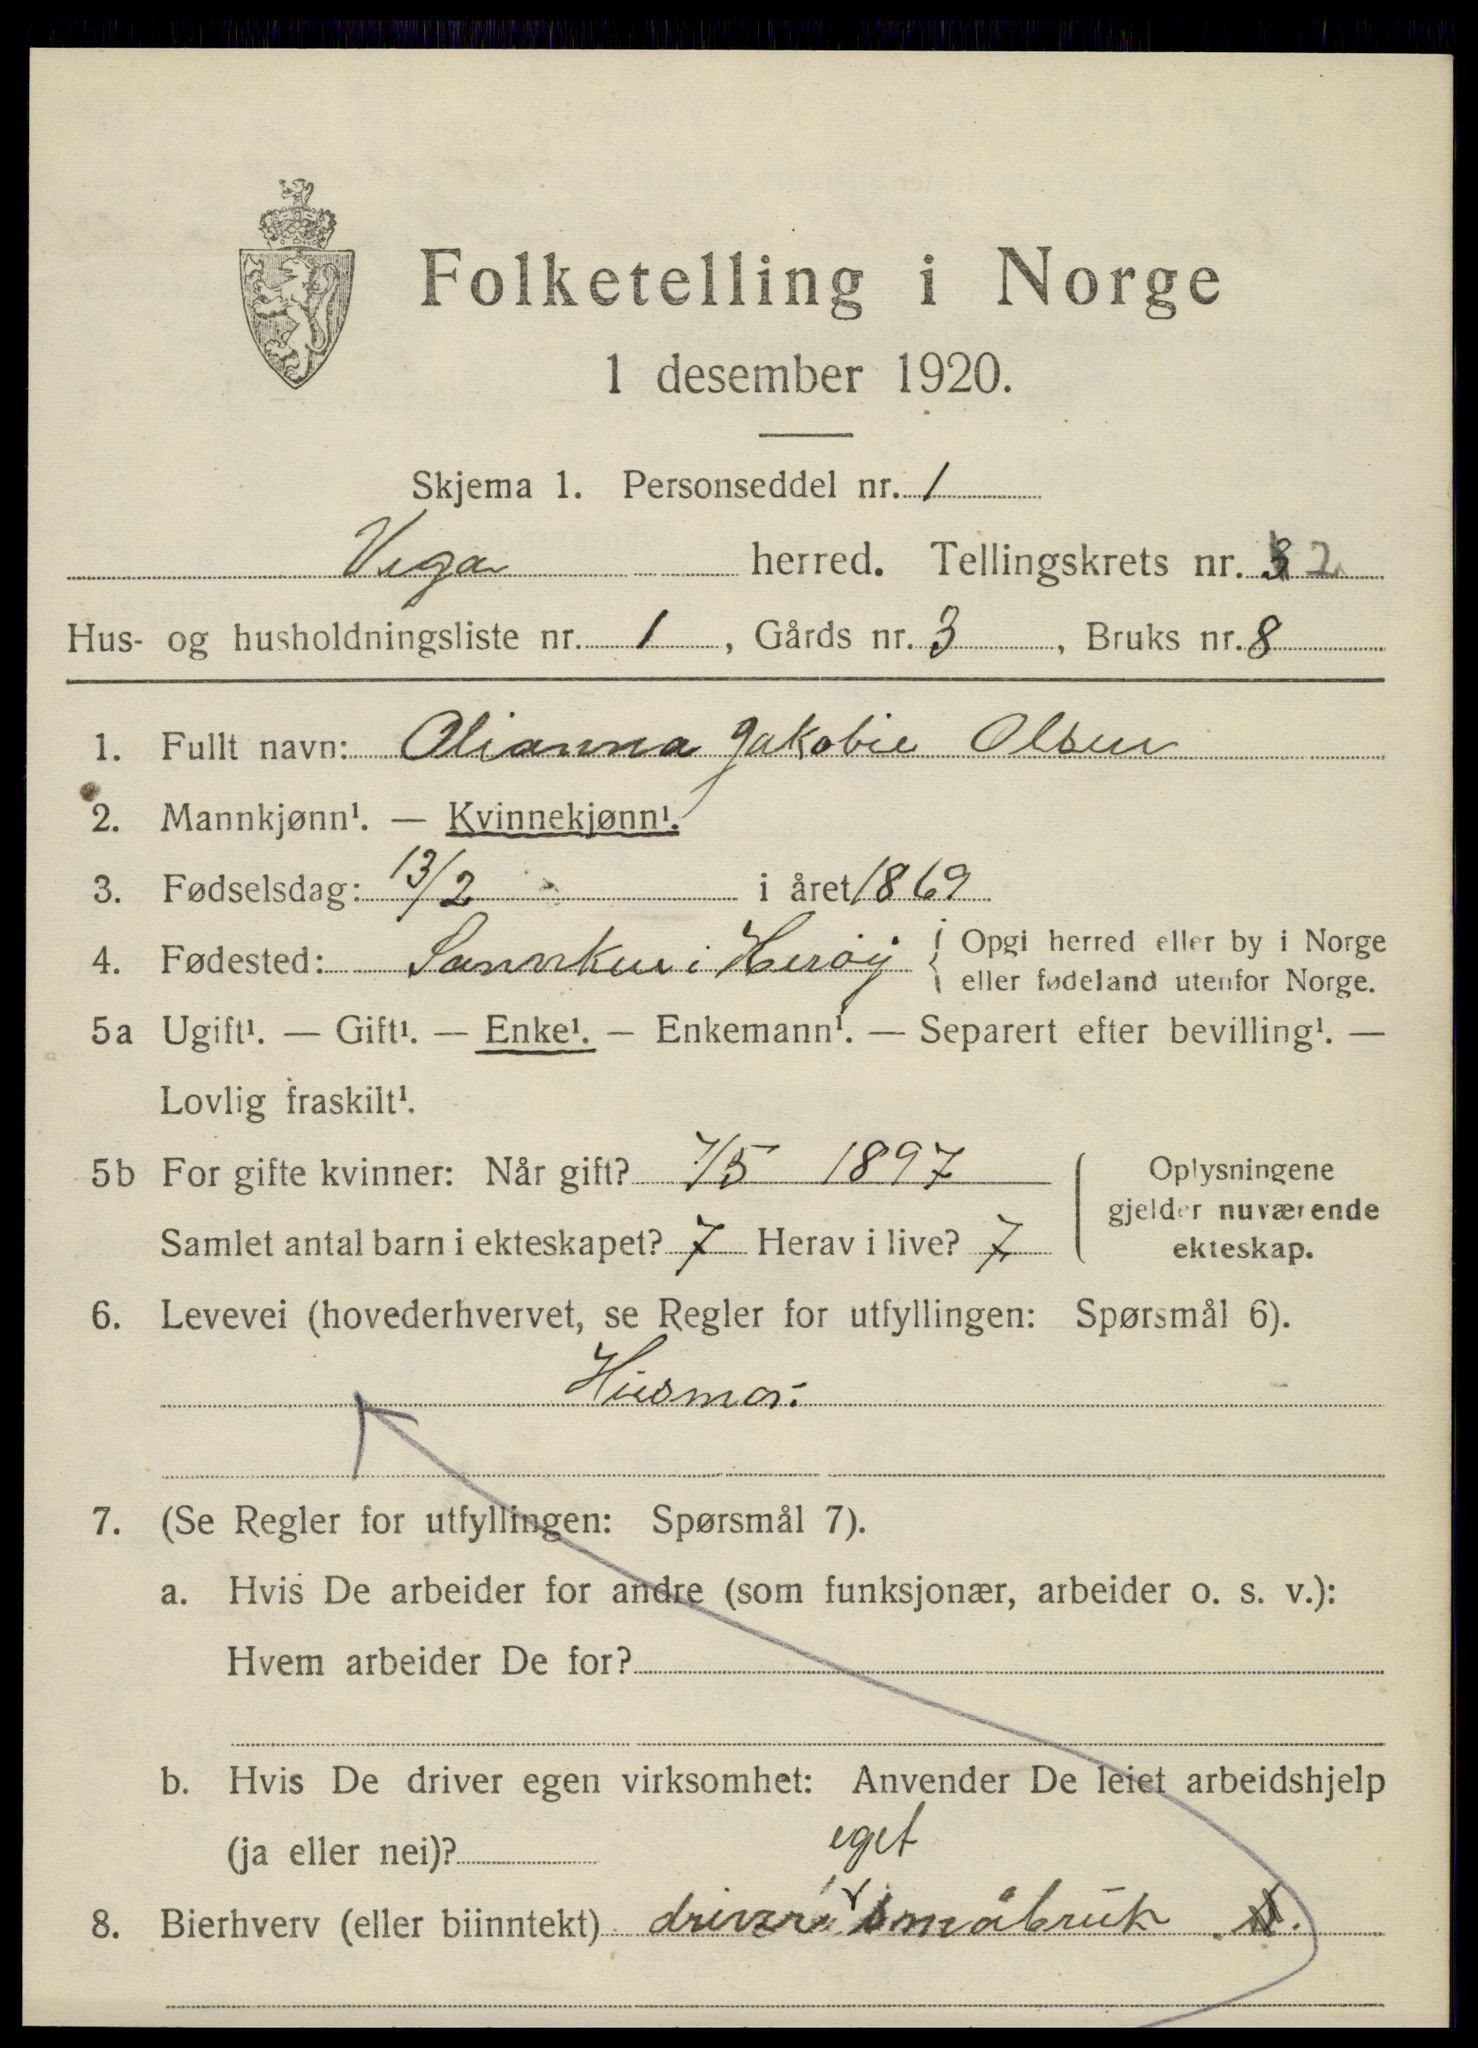 Folketelling i Norge
1 desember 1920.
Skjema 1. Personseddel nr. 1
Vega herred. Tellingskrets nr. 2
Hus- og husholdningsliste nr. 1, Gårds nr. 3, Bruks nr. 8
1. Fullt navn: Olianna Jakobie Olsen
2. Mannkjønn¹. — Kvinnekjønn¹.
3. Fødselsdag: 13/2 i året 1869
4. Fødested: i Herøy { Opgi herred eller by i Norge
eller fødeland utenfor Norge.
5a Ugift¹. — Gift¹. — Enke¹. — Enkemann¹. — Separert efter bevilling¹. —
Lovlig fraskilt¹.
5b For gifte kvinner: Når gift? 7/5 1897
Samlet antal barn i ekteskapet? 7 Herav i live? 7
Oplysningene
gjelder nuværende
ekteskap.
6. Levevei (hovederhvervet, se Regler for utfyllingen: Spørsmål 6).
Husmor.
7. (Se Regler for utfyllingen: Spørsmål 7).
a. Hvis De arbeider for andre (som funksjonær, arbeider o. s. v.):
Hvem arbeider De for?
b. Hvis De driver egen virksomhet: Anvender De leiet arbeidshjelp
(ja eller nei)?
eget
8. Bierhverv (eller biinntekt) driver småbruk